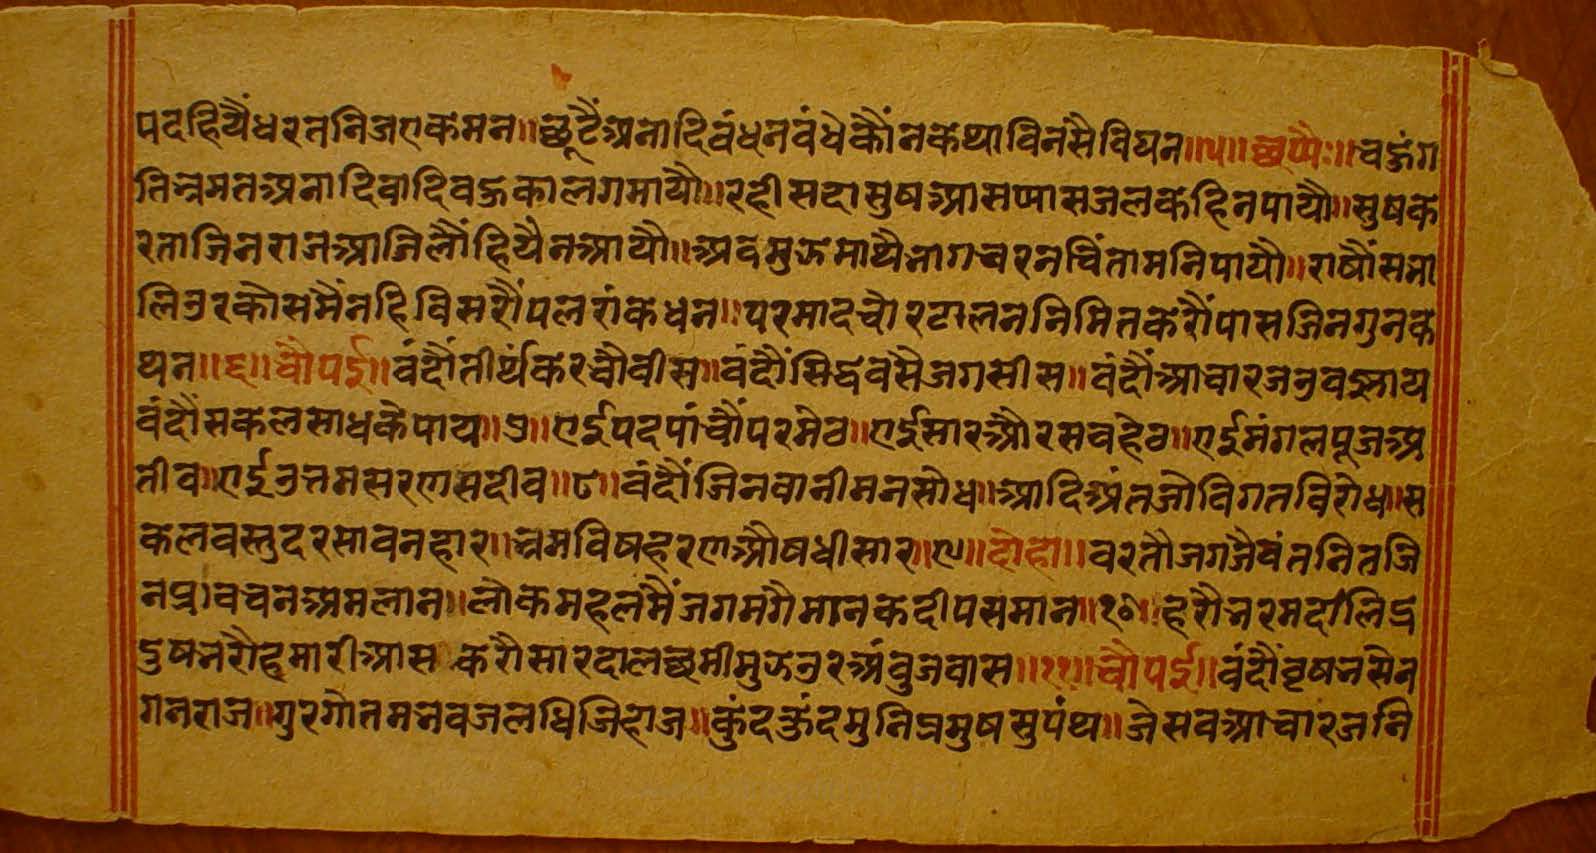 पदहियैंधरतनिजएकमन॥छूटैंअनादिवंधनवंधेकौंनकथाविनसैविघन॥५॥छप्पैः॥वहुंग
तिभ्रमतअनादिवादिवहुकालगमायौ॥रहीसदासुषआसप्पासजलकहिनपायौ॥सुषक
रताजिनराजआजिलौंहियैनआयौ॥अवमुझमाथैभागचरनचिंतामनिपायौ॥राषौंसभा
लिउरकोसमैंनहिविसरौंपलरांकधन॥परमादचोरटालननिमितकरौंपासजिनगुनक
थन॥६॥चौपई॥वंदौंतीर्थंकरचौवीस॥वंदौंसिद्धवसैजगसीस॥वंदौंआचारजउवझाय
वंदौंसकलसाधकेपाय॥७॥एईपदपांचौंपरमेठ॥एईसारऔरसवहेठ॥एईमंगलपूजअ
तीव॥एईउत्तमसरणसदीव॥८॥वंदौंजिनवानीमनसोध॥आदिअंतजोविगतविरोध॥स
कलवस्तुदरसावनहार॥भ्रमविषहरणऔषधीसार॥९॥दोहा॥वरतौजगजैवंतनितजि
नप्रावचनअमलान॥लोकमहलमैंजगमगैमानकदीपसमान॥१०॥हरौभरमदालिद्र
दुषभरौहमारीआस करौसारदालछमीमुझउरअंवुजवास॥११॥चौपई॥वंदौंवृषभसेन
गनराज॥गुरगौतमभवजलधिजिहाज॥कुंदकुंदमुनिप्रमुषसुपंथ॥जेसवआचारजनि